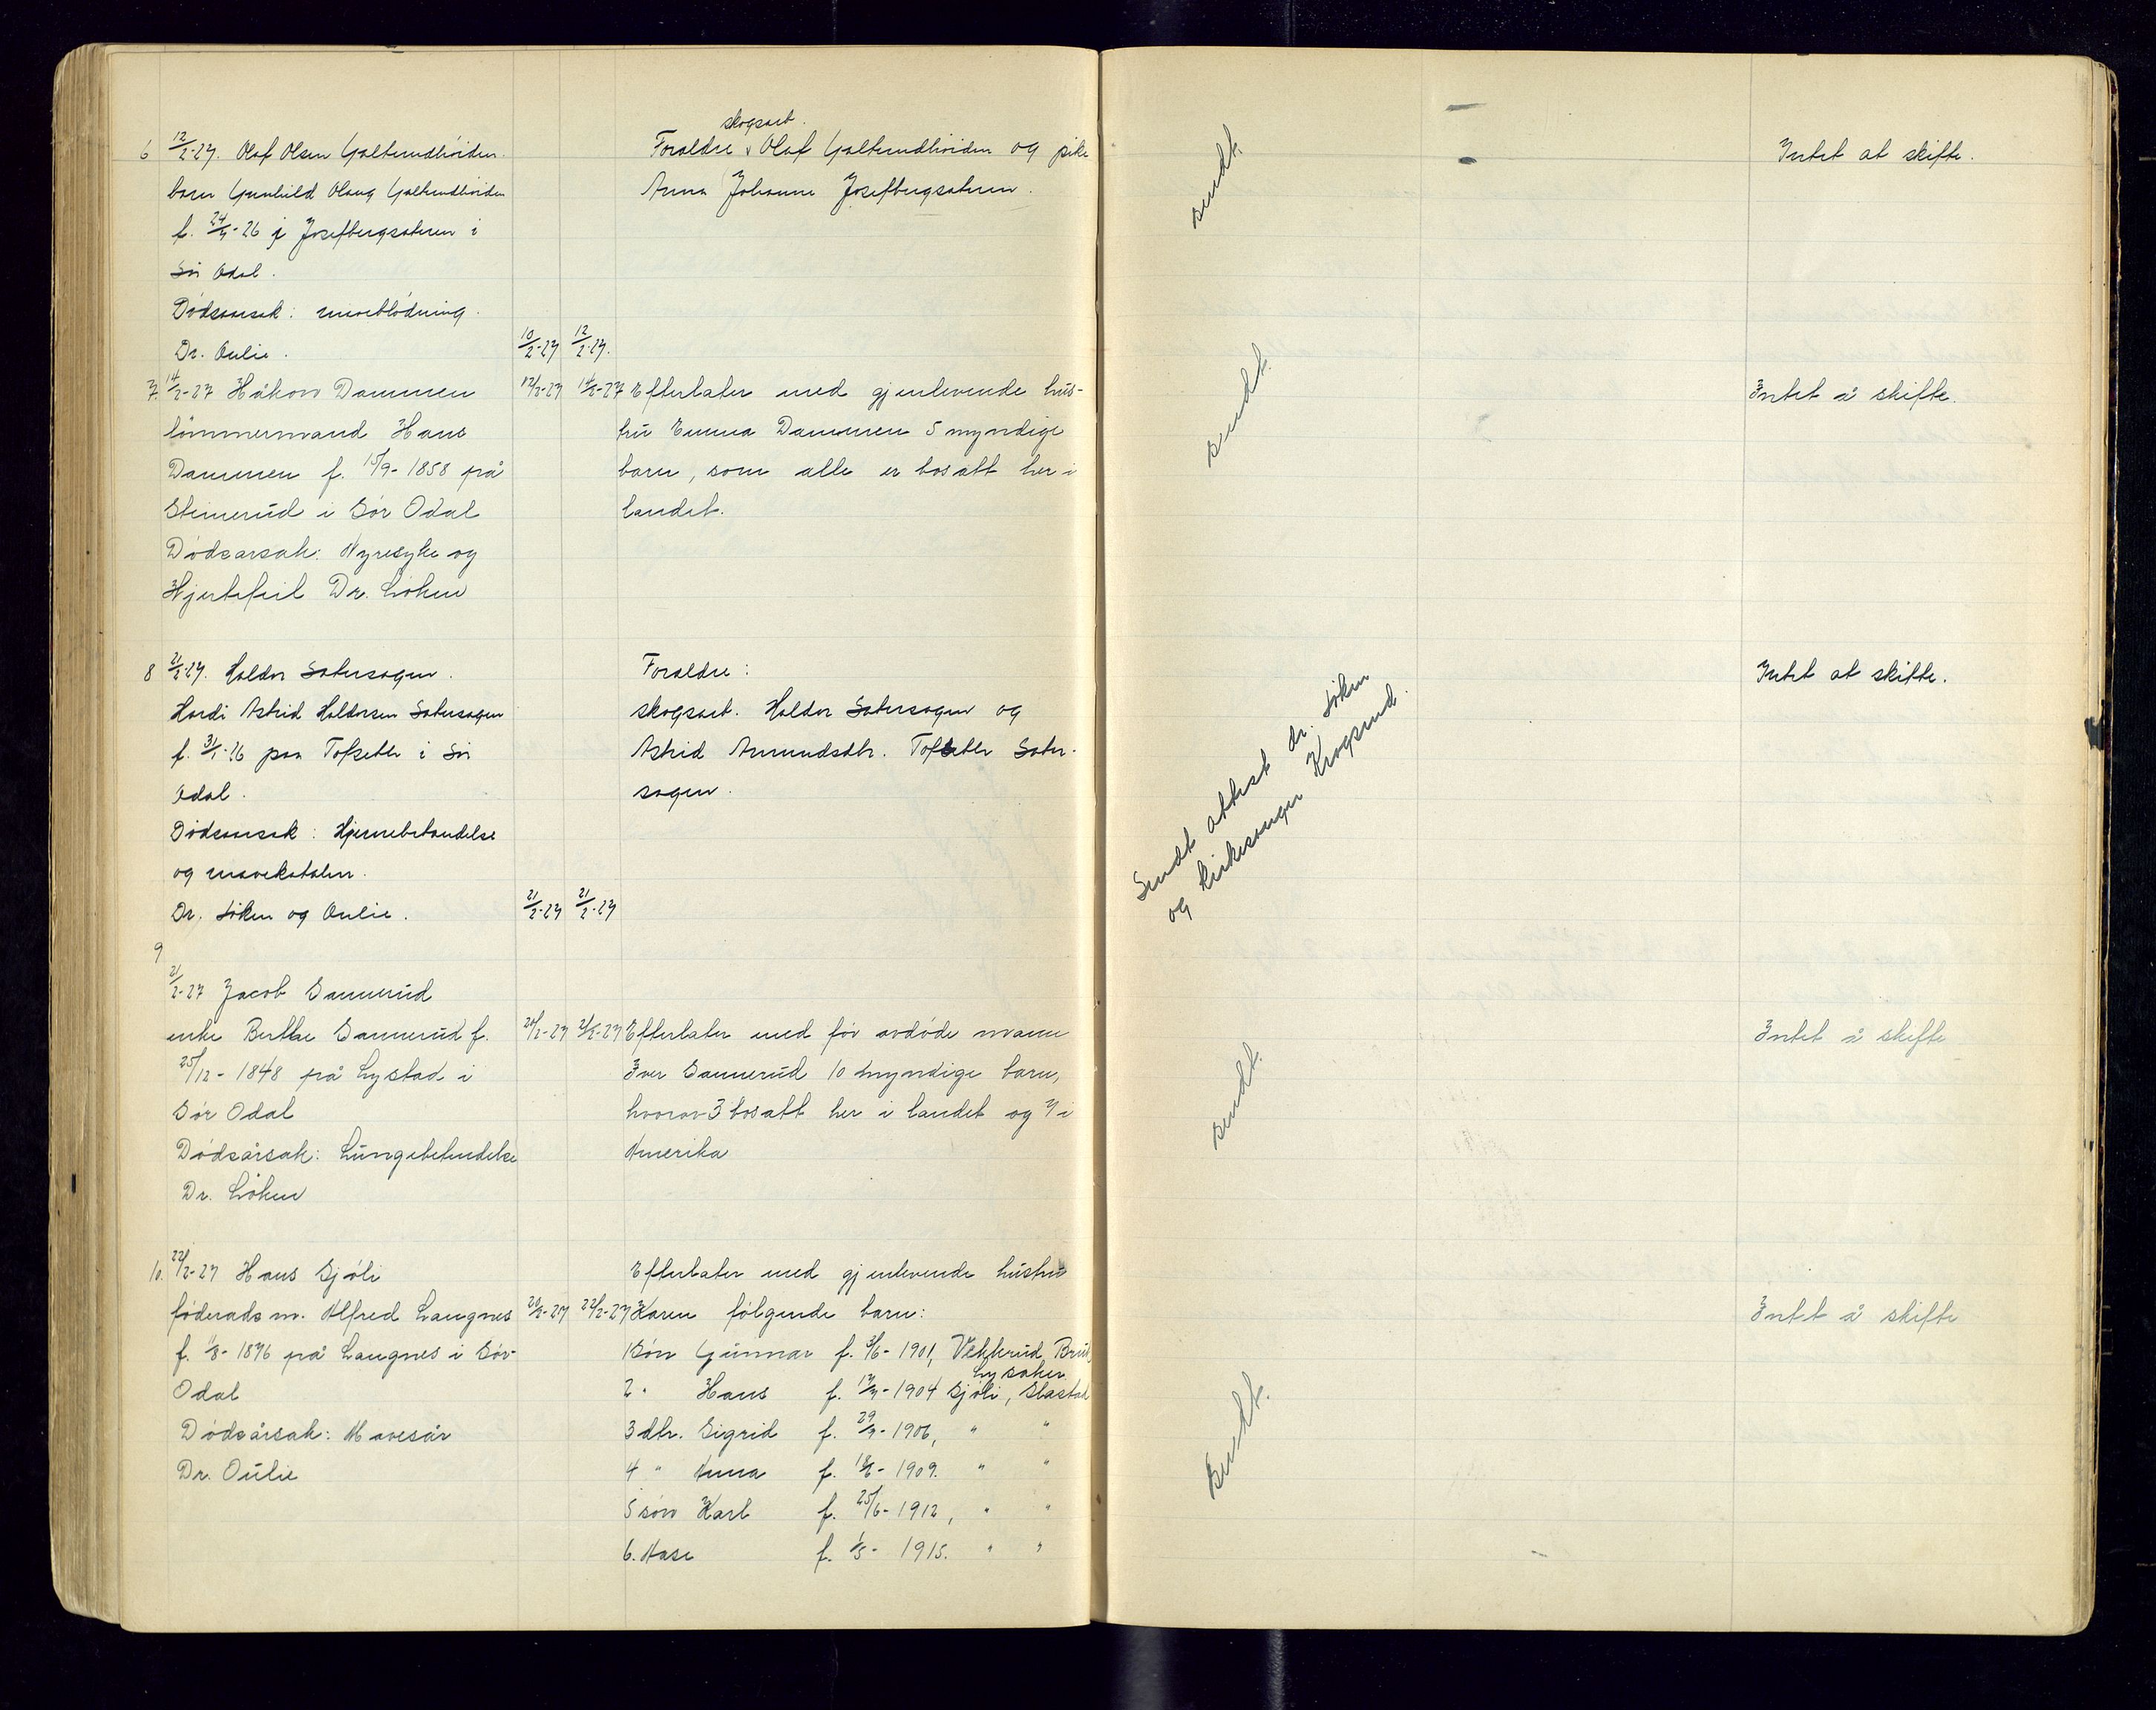 6 12/2-27. Olaf Olsen Galterudhöiden.
barn Gunhild Olaug Galterudhöiden
f. 24/4-26 i Josefbergsætren i
Sör Odal.
Dödsaarsak: maveblödning.
Dr. Aulie. 10/2-27 12/2-27.
skogsarb.
Foraldre, Olaf Galterudhöiden og pike
Anna Johanne Josefbergsætren.
sendt.
Intet at skifte.
7. 14/2-27 Håkon Dammen 12/2-27 14/2-27
tömmermand Hans
Dammen f. 15/9-1858 på
Steinerud i Sör Odal
Dödsarsak: Nyresyke og
Hjertefeil Dr. Löken
Efterlater med gjenlevende hus-
tru Emma Dammen 5 myndige
barn, som alle er bosatt her i
landet.
sendt.
Intet å skifte.
8 21/2-27. Haldor Sætersagen.
Hardi Astrid Haldorsen Sætersagen
f. 31/1-26 paa Tofsetter i Sör
Odal.
Dödsaarsak: Hjernebetændelse
og mavekatahr.
Dr. Löken og Aulie. 21/2-27 21/2-27
Foraldre:
skogsarb. Haldor Sætersagen og
Astrid Amundsdtr. Tofsetter Sæter-
sagen.
Sendt attest dr. Löken
og kirkesanger Krogsrud.
Intet at skifte.
9
21/2-27 Jacob Sannerud
enke Berthe Sannerud f. 20/2-27 21/2-27
25/12-1848 på Lystad i
Sör Odal
Dödsårsak: Lungebetendelse
Dr. Löken
Efterlater med för avdöde mann
Iver Sannerud 10 myndige barn,
hvorav 3 bosatt her i landet og 7 i
Amerika
sendt.
Intet å skifte
10. 22/2-27 Hans Sjöli
föderads m. Alfred Langnes 20/2-27 22/2-27
f. 1/8-1876 på Langnes i Sör-
Odal
Dödsårsak: Mavesår
Dr. Oulie
Efterlater med gjenlevende hustru
Karen fölgende barn:
1 Sön Gunnar f. 3/6-1901, Vekkerud, Bruk
Lysaker
2 " Hans f. 17/4-1904 Sjöli, Slastad
3 dtr. Sigrid f. 29/4-1906, " "
4 " Anna f. 18/6-1909. " "
5 sön Karl f. 25/6-1912, " "
6. Aase f. 1/5-1915. " "
Sendt.
Intet å skifte